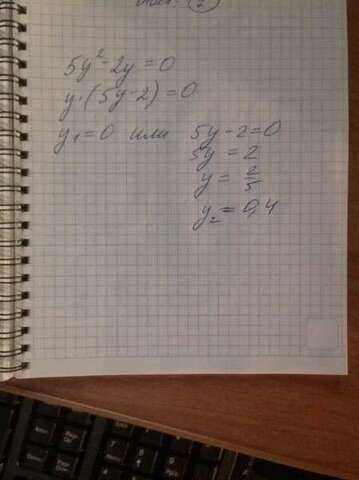 5y² - 2y = 0
y · (5y - 2) = 0
y₁ = 0 или 5y - 2 = 0
5y = 2
y = 2/5
y₂ = 0,4